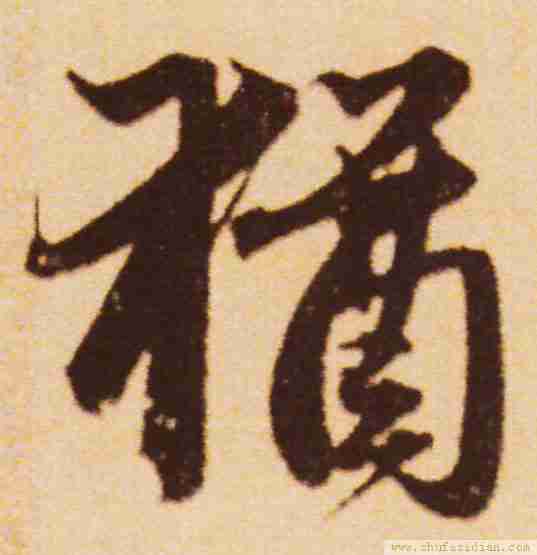 橘
www.shufazidian.com